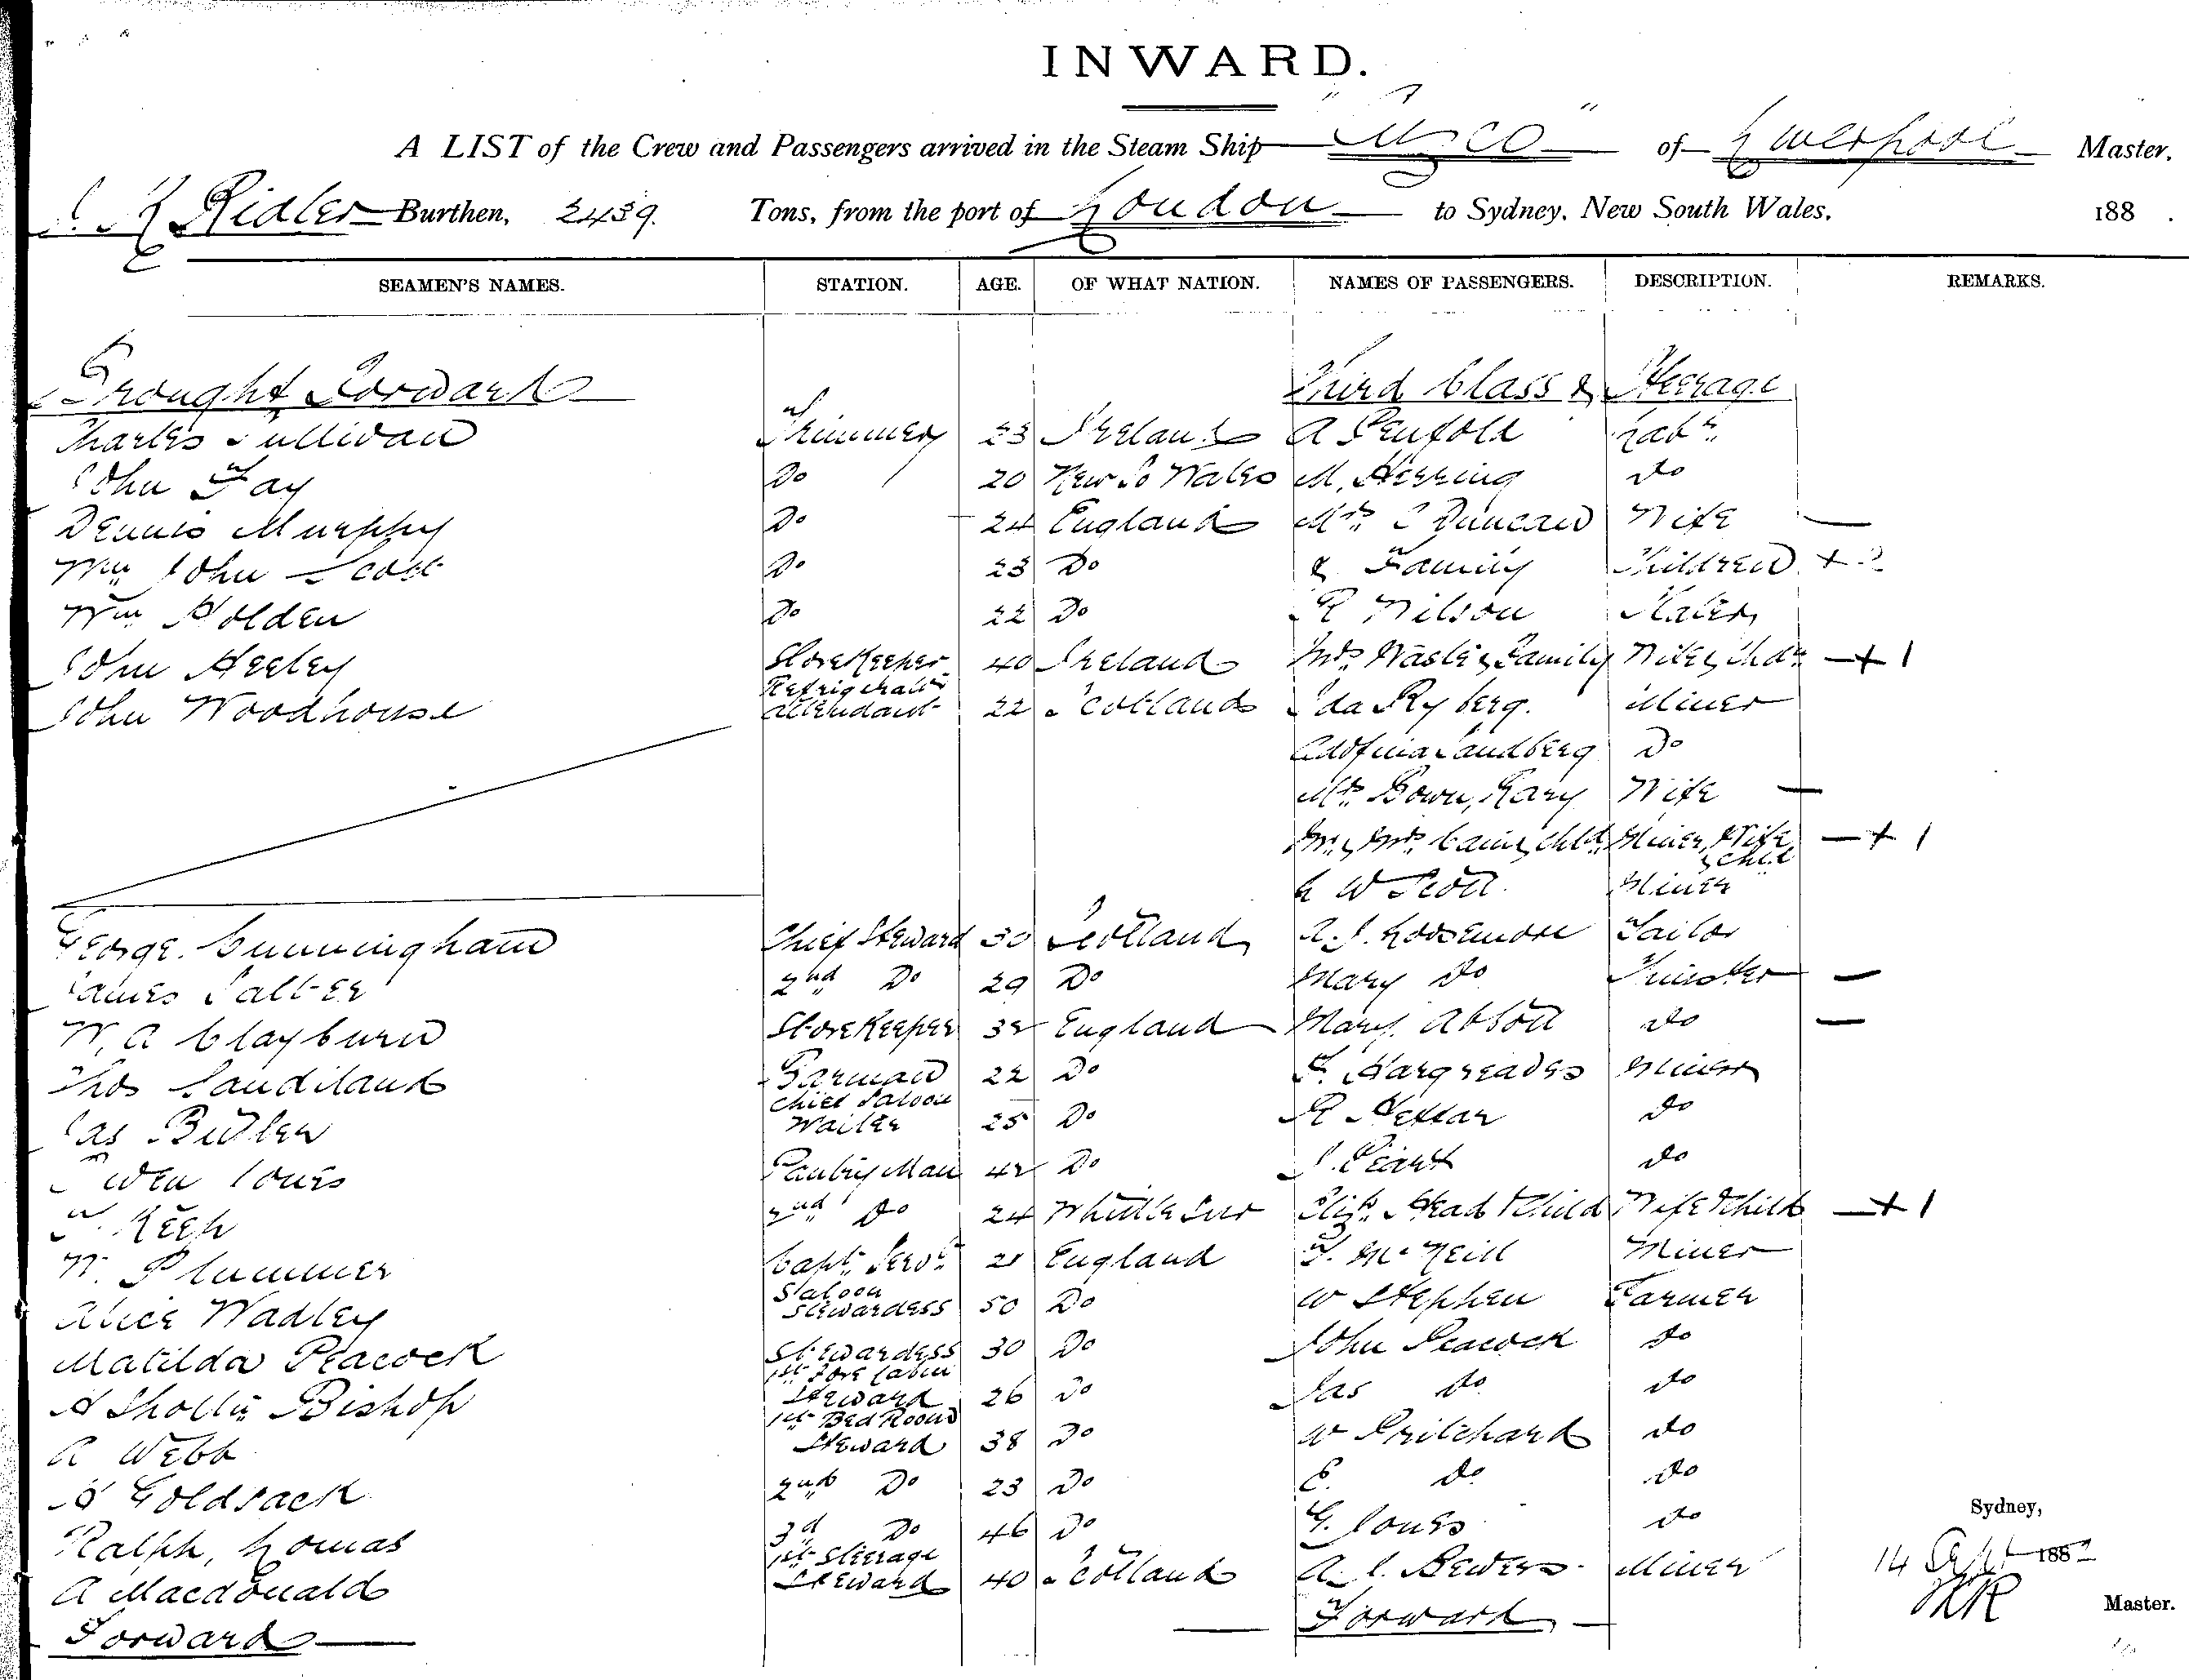 INWARD.
A LIST of the Crew and Passengers arrived in the Steam Ship "Cuzco" of Liverpool Master.
Ridler Burthen, 2439. Tons, from the port of London to Sydney. New South Wales. 188 .
SEAMEN'S NAMES. STATION. AGE. OF WHAT NATION. NAMES OF PASSENGERS. DESCRIPTION. REMARKS.
Brought Forward Third Class & Steerage
Charles Sullivan Trimmer 23 Ireland A Penfold Labr
John Fay Do 20 New So Wales M. Herring do
Dennis Murphy Do 24 England Mrs Duncan Wife —
Wm John Scott Do 23 Do & Family Children +
Wm Holden Do 22 Do R Wilson
John Heeley Storekeeper 40 Ireland Mrs & Family Wife & Chdn — + 1
John Woodhouse Refrigerator Attendant 22 Scotland Ida Ryberg. Miner
Sandberg Do
Mrs Bown, Mary Wife —
Mr & Mrs Cain & Chld Miner, Wife & Child — + 1
W Scott Miner
George Cunningham Chief Steward 30 Scotland A. J. Loosemore Tailor
James Salter 2nd Do 29 Do Mary Do Spinster —
W. A Clayburn Storekeeper England Mary Abbott do —
Thos Sandilands Barman 22 Do F. Hargreaves Miner
Jas Butler Chief Saloon Waiter 25 Do R Nettar do
Owen Jones Pantry Man 42 Do do
Keeh 2nd Do 24 Elizh Head & Child Wife & Child — + 1
W. Plummer Capts Servt 21 England McNeill Miner
Alice Wadley Saloon Stewardess 50 Do W Stephen Farmer
Matilda Peacock Stewardess 30 Do John Peacock do
A Shollis Bishop 1st Fore Cabin Steward 26 Do Jas do do
A Webb 1st Bed Room Steward 38 Do W Pritchard do
Goldsack 2nd Do 23 Do E. do do
Ralph, Lomas 3d Do 46 Do G. Jones do
A Macdonald 1st Steerage Steward 40 Scotland A. J. Bewers Miner
Forward Forward
Sydney,
14 Sept 188
Master.